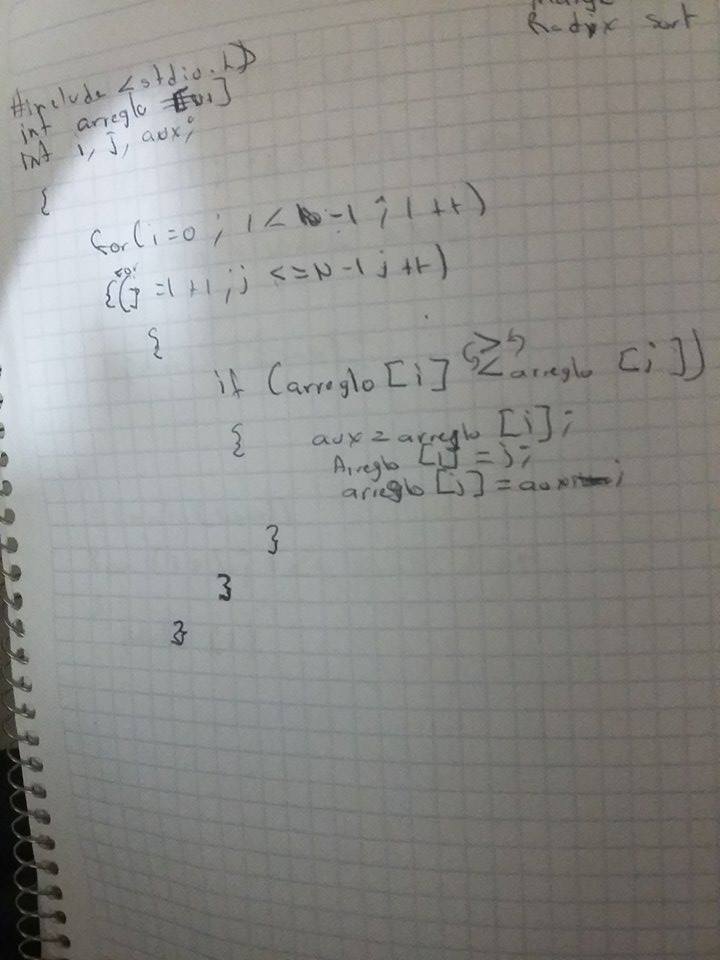 Radix sort
#include <stdio.h>
int arreglo
int i, j, aux;
{
for(i=0; i< -1; i++)
for
{(j=i+1; j <=N-1 j++)
{
if (arreglo [i] > < arreglo [j])
{ aux = arreglo [i];
Arreglo [i] = j;
arreglo [j] = aux;
}
}
}